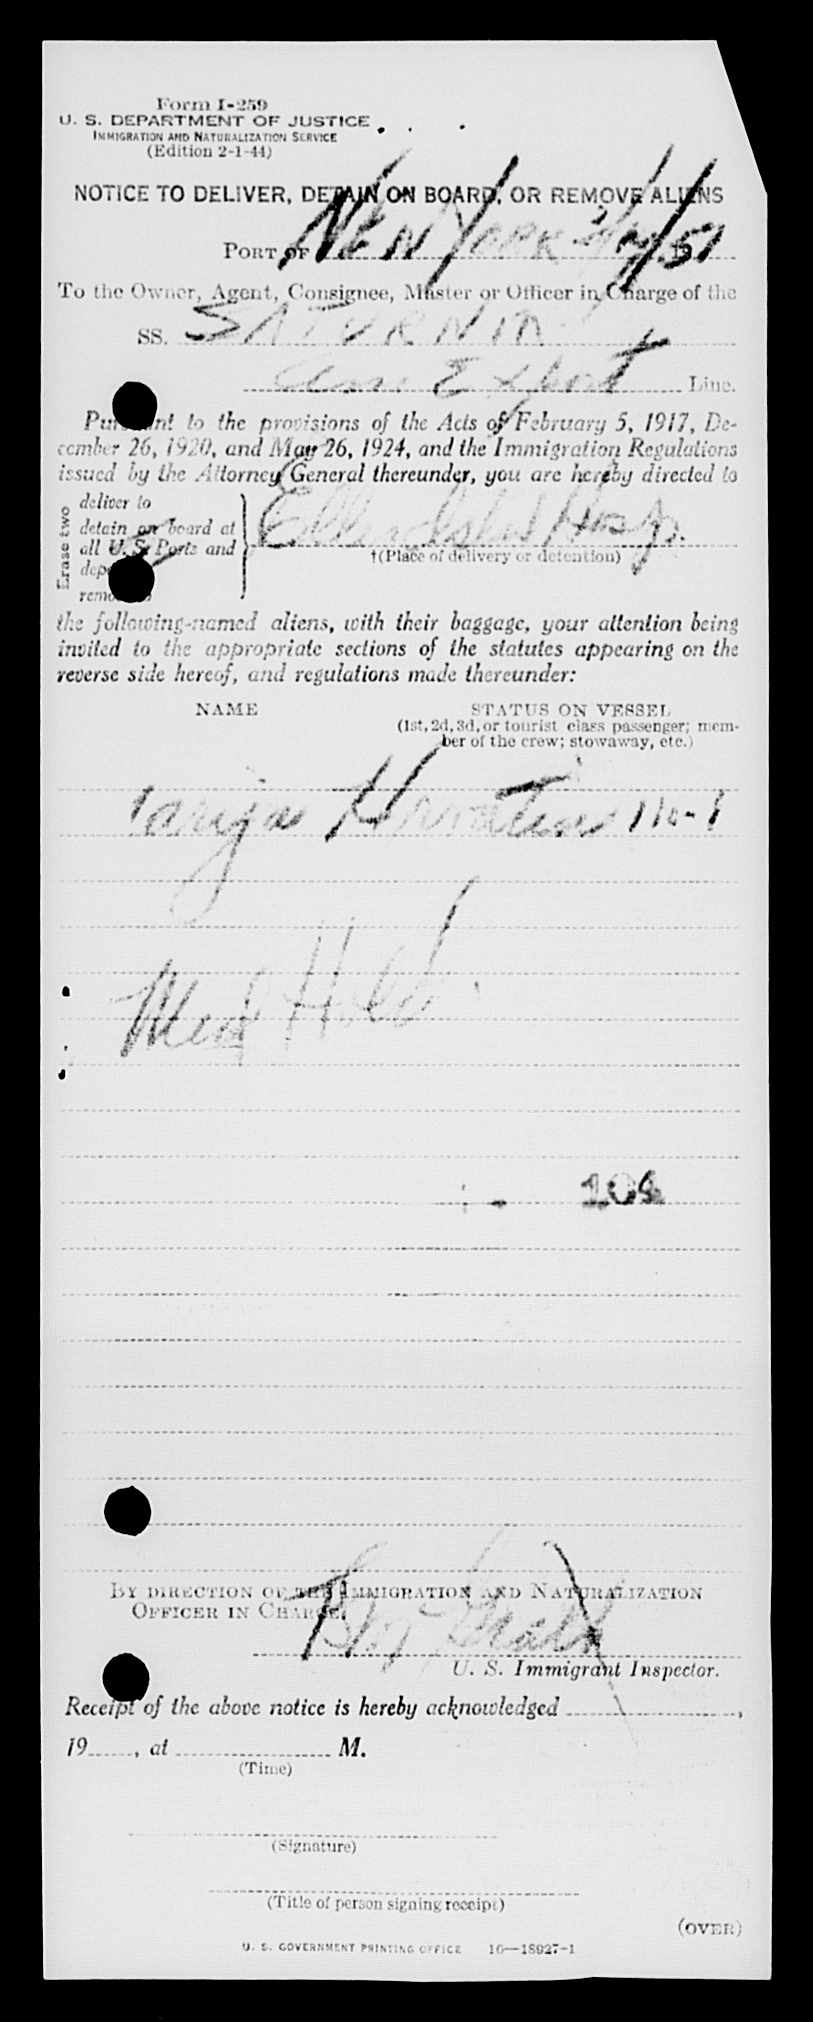 Form I-259
U. S. DEPARTMENT OF JUSTICE
IMMIGRATION AND NATURALIZATION SERVICE
(Edition 2-1-44)
NOTICE TO DELIVER, DETAIN ON BOARD, OR REMOVE ALIENS
PORT OF NEW YORK 19 51
To the Owner, Agent, Consignee, Master or Officer in Charge of the
SS. SATURNIA
Am Export Line.
Pursuant to the provisions of the Acts of February 5, 1917, De-
cember 26, 1920, and May 26, 1924, and the Immigration Regulations
issued by the Attorney General thereunder, you are hereby directed to
Erase two
deliver to
detain on board at
all U. S. Ports and
Ellis Island Hosp.
†(Place of delivery or detention)
the following-named aliens, with their baggage, your attention being
invited to the appropriate sections of the statutes appearing on the
reverse side hereof, and regulations made thereunder:
NAME STATUS ON VESSEL
(1st, 2d, 3d, or tourist class passenger; mem-
ber of the crew; stowaway, etc.)
Hrvatin 110-1
Med Hold
BY DIRECTION OF THE IMMIGRATION AND NATURALIZATION
OFFICER IN CHARGE.
U. S. Immigrant Inspector.
Receipt of the above notice is hereby acknowledged ,
19 , at M.
(Time)
(Signature)
(Title of person signing receipt)
(OVER)
U. S. GOVERNMENT PRINTING OFFICE 16—18027-1